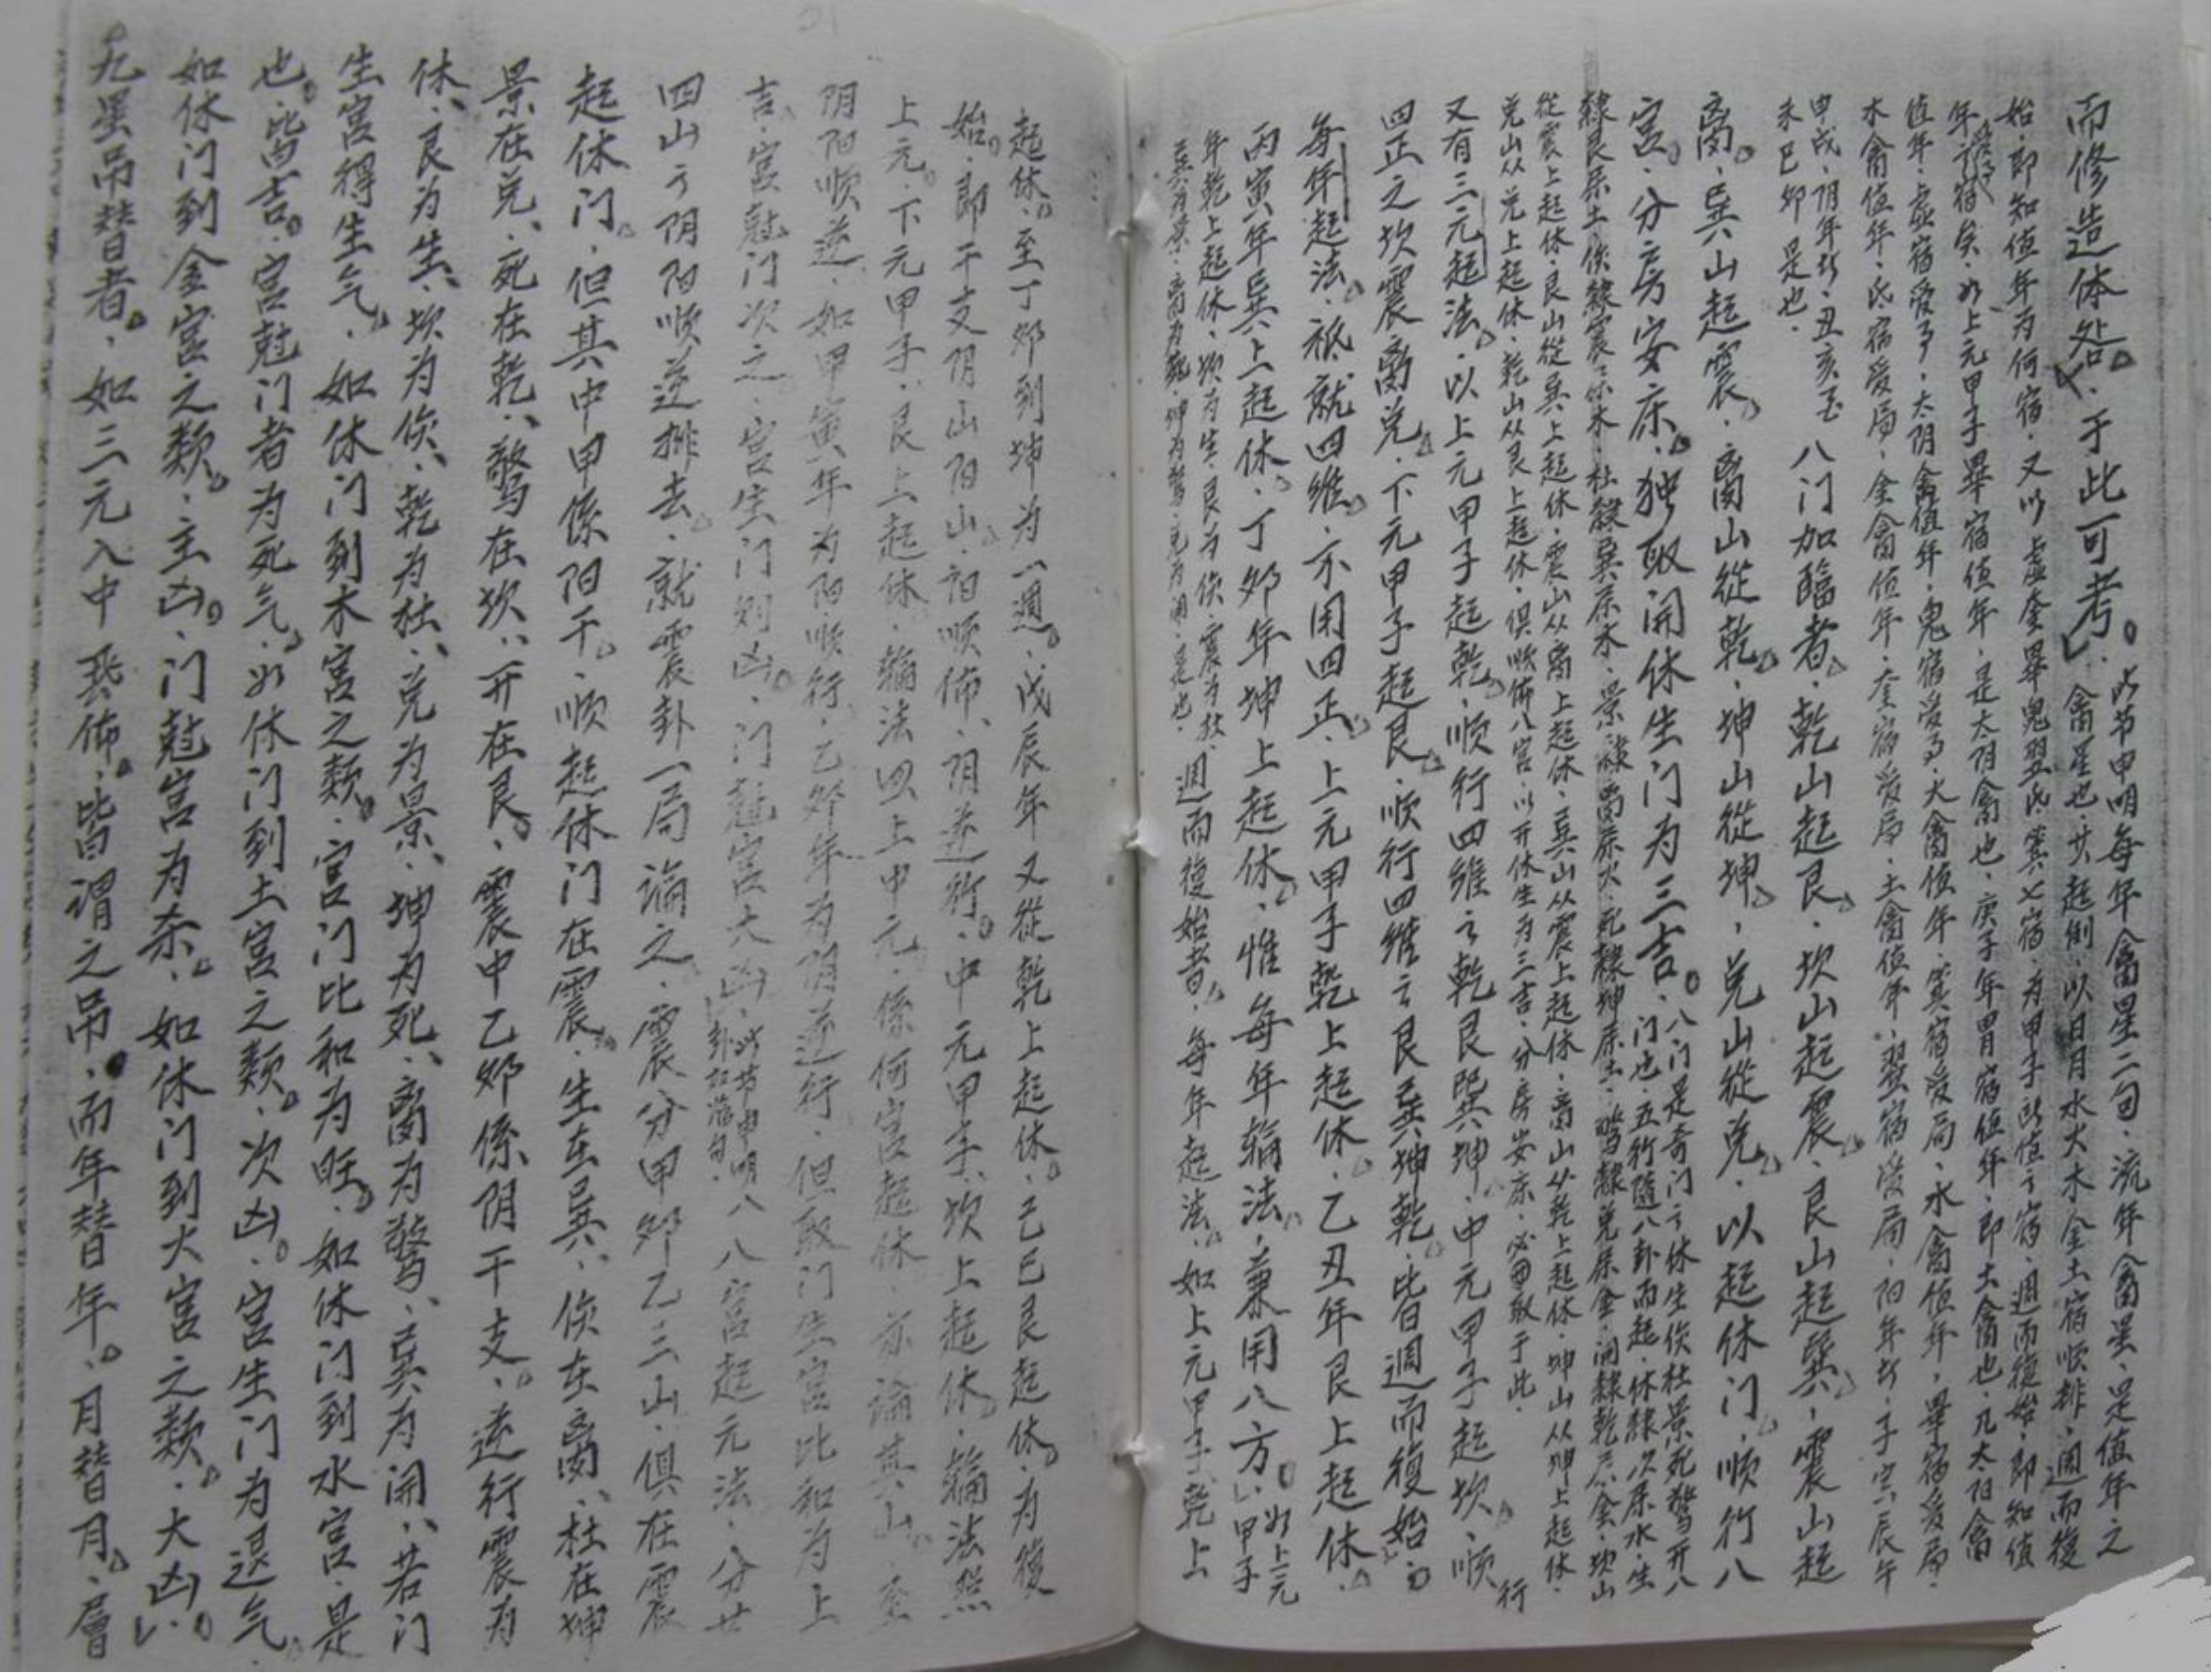 而修造体咎。于此可考。此节申明每年禽星二句。流年禽星。是值年之
禽星也。其起例。以日月水火木金土宿顺排。週而復
始。即知值年为何宿。又以虚奎畢鬼翌氐箕七宿。为甲子所值之宿。週而復始。即知值
年宿矣。如上元甲子畢宿值年。是太阴禽也。庚子年胃宿值年。即土禽也。凡太阳禽
值年。虚宿爱局。太阴禽值年。鬼宿爱局。火禽值年。箕宿爱局。水禽值年。畢宿爱局。
木禽值年。氐宿爱局。金禽值年。奎宿爱局。土禽值年。翌宿爱局。阳年於子寅辰午
申戌。阴年於丑亥酉
未巳卯是也。
八门加臨者。乾山起艮。坎山起震。艮山起巽。震山起
离。巽山起震。离山從乾。坤山從坤。兑山從兑。以起休门。顺行八
宫。分房安床。独取開休生门为三吉。八门是奇门之休生侯杜景死驚开八
门也。五行隨八卦而起。休隸次屌水。生
隸艮屌土。侯隸震屌木。杜隸巽屌木。景隸离屌火。死隸坤屌土。驚隸兑屌金。開隸乾屌金。坎山
從震上起休。艮山從巽上起休。震山从离上起休。巽山从震上起休。离山从乾上起休。坤山从坤上起休。
兑山从兑上起休。乾山从艮上起休。俱顺佈八宫。以开休生为三吉。分房安床。必由取于此。
又有三元起法。以上元甲子起乾。顺行四維之乾艮巽坤。中元甲子起坎。顺行
四正之坎震离兑。下元甲子起艮。顺行四維之艮巽坤乾。皆週而復始。
每年起法。祗就四維。不用四正。上元甲子乾上起休。乙丑年艮上起休。
丙寅年巽上起休。丁卯年坤上起休。惟每年輪法。兼用八方。如上元
甲子
年乾上起休。坎为生。艮为侯。震为杜。
巽为景。离为死。坤为驚。兑为開。是也。
週而復始者。每年起法。如上元甲子乾上
起休。至丁卯到坤为一週。戊辰年又從乾上起休。己巳艮起休。为復
始。即干支阴山阳山。阳顺佈、阴逆行。中元甲子、坎上起休。輪法照
上元。下元甲子。艮上起休。輪法照上中元。係何宫起休。亦論其山。至
阴阳顺逆。如甲寅年为阳顺行。乙卯年为阴逆行。但取门生宫比和为上
吉。宫尅门次之。宫生门则凶。门尅宫大凶。此节申明八
卦加臨句。
八宫起元法。分廿
四山之阴阳顺逆排去。就震卦一局論之。震分甲卯乙三山。俱在震
起休门。但其中甲係阳干。顺起休门在震。生在巽。侯在离、杜在坤
景在兑、死在乾。驚在坎。开在艮。震中乙卯係阴干支。逆行震为
休、艮为生、坎为侯、乾为杜、兑为景、坤为死、离为驚、巽为開。若门
生宫得生气。如休门到木宫之類。宫门比和为旺。如休门到水宫。是
也。皆吉。宫尅门者为死气。如休门到土宫之類。次凶。宫生门为退气。
如休门到金宫之類。主凶。门尅宫为杀。如休门到火宫之類。大凶。
九星吊替者。如三元入中飛佈。皆谓之吊。而年替年。月替月。層